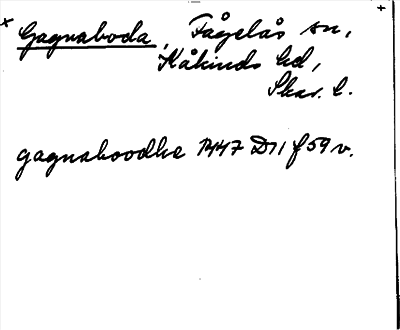 Gagnaboda, Fågelås sn,
Kåkinds hd,
Skar. l.
gagnaboodhe 1447 D11 f 59 v.